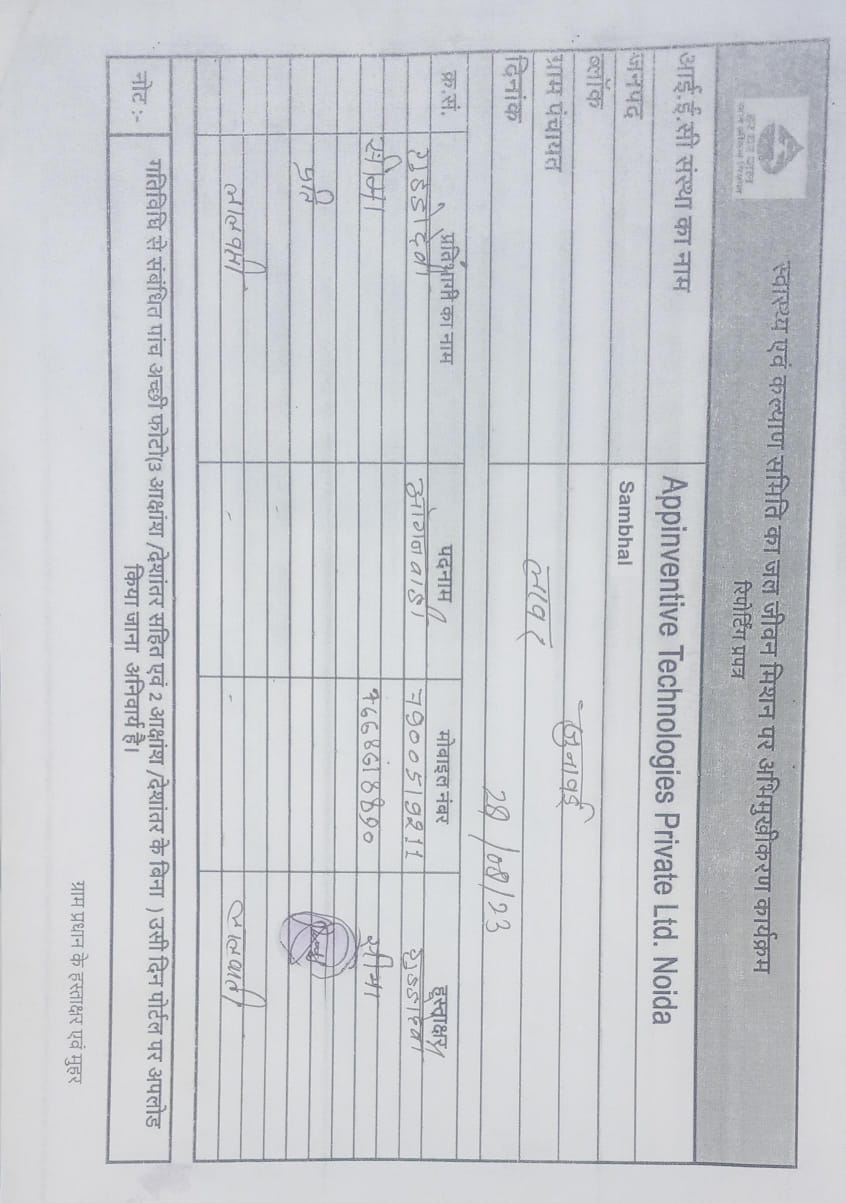 हर घर जल
जल जीवन मिशन
स्वास्थ्य एवं कल्याण समिति का जल जीवन मिशन पर अभिमुखीकरण कार्यक्रम
रिपोर्टिंग प्रपत्र
आई.ई.सी संस्था का नाम Appinventive Technologies Private Ltd. Noida
जनपद Sambhal
ब्लॉक जुनावई
ग्राम पंचायत लावर
दिनांक 28/08/23
क्र.सं. प्रतिभागी का नाम पदनाम मोबाइल नंबर हस्ताक्षर
गुड्डो देवी आंगनवाड़ी 7900519211 गुड्डो देवी
सीमा सीमा
नोट :- गतिविधि से संबंधित पांच अच्छी फोटो(3 आक्षांषा /देशांतर सहित एवं 2 आक्षांषा /देशांतर के बिना ) उसी दिन पोर्टल पर अपलोड
किया जाना अनिवार्य है।
ग्राम प्रधान के हस्ताक्षर एवं मुहर